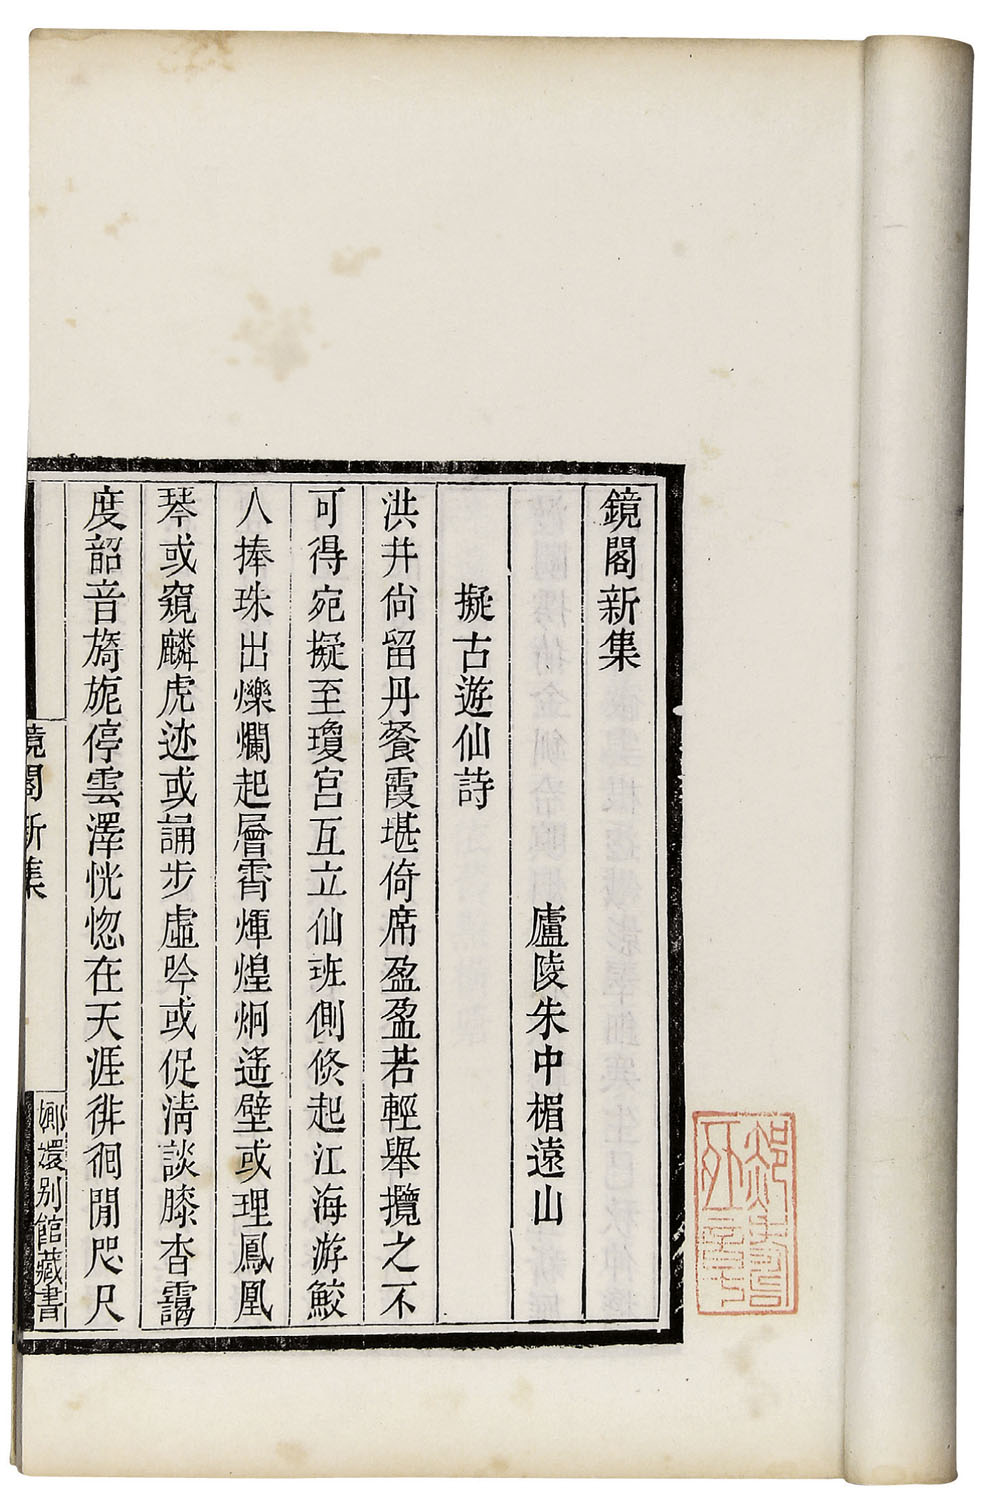 鏡閣新集
廬陵朱中楣遠山
擬古遊仙詩
洪井尙留丹餐霞堪倚席盈盈若輕舉攬之不
可得宛擬至瓊宫互立仙班側倏起江海游鮫
人捧珠出爍爛起層霄煇煌炯遙壁或理鳳凰
琴或窺麟虎迹或誦步虛吟或促淸談膝杳靄
度韶音旖旎停雲澤恍惚在天涯徘徊閒咫尺
鏡閣新集
嫏嬛别館藏書